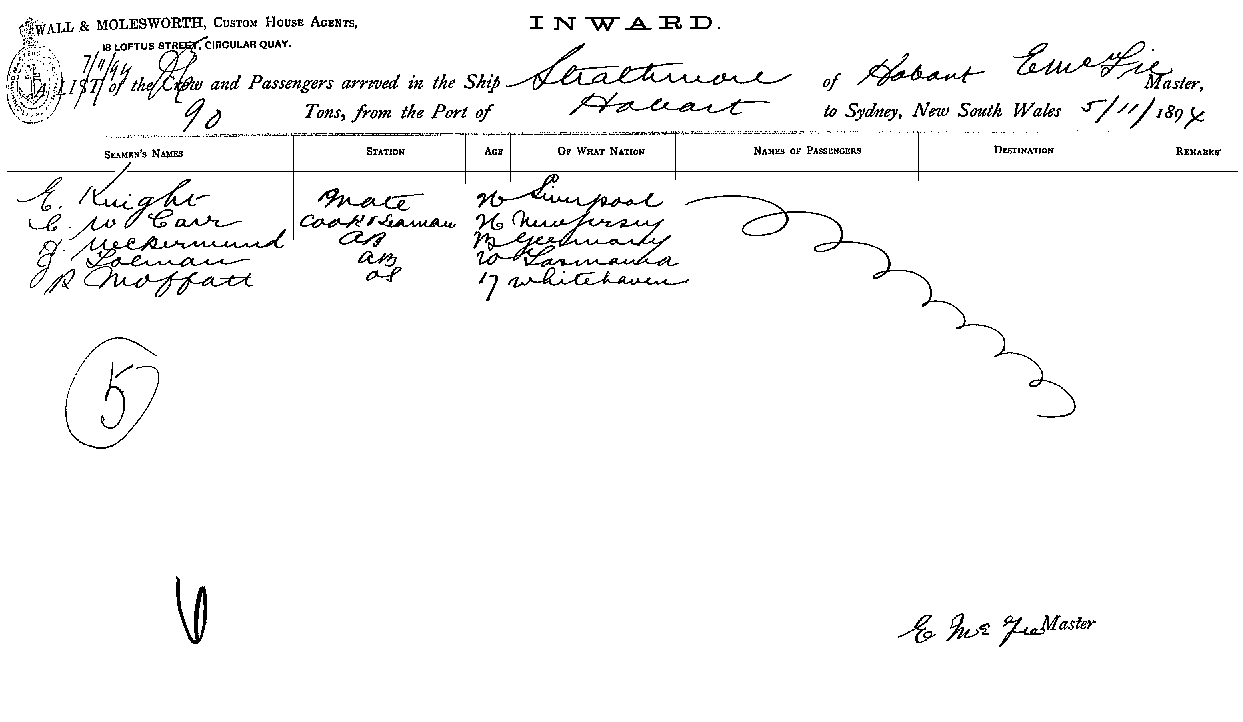 WALL & MOLESWORTH, CUSTOM HOUSE AGENTS,
18 LOFTUS STREET, CIRCULAR QUAY.
INWARD.
7/11/94
LIST of the Crew and Passengers arrived in the Ship Strathmore of Hobart E McFie Master,
90 Tons, from the Port of Hobart to Sydney, New South Wales 5/11/1894
SEAMEN'S NAMES STATION AGE OF WHAT NATION NAMES OF PASSENGERS DESTINATION REMARKS
E. Knight Mate 26 Liverpool
C W Carr Cook & Seaman 26 New Jersey
J AB Germany
J Tolman AB 20 Tasmania
R Moffatt OS 17 Whitehaven
5
6
E McFie Master